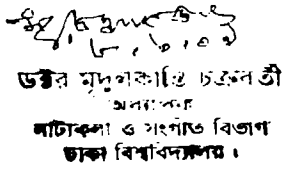 ডক্টর মৃদুলকান্তি চক্রবর্তী
অধ্যাপক
নাট্যকলা ও সংগীত বিভাগ
ঢাকা বিশ্ববিদ্যালয় ।